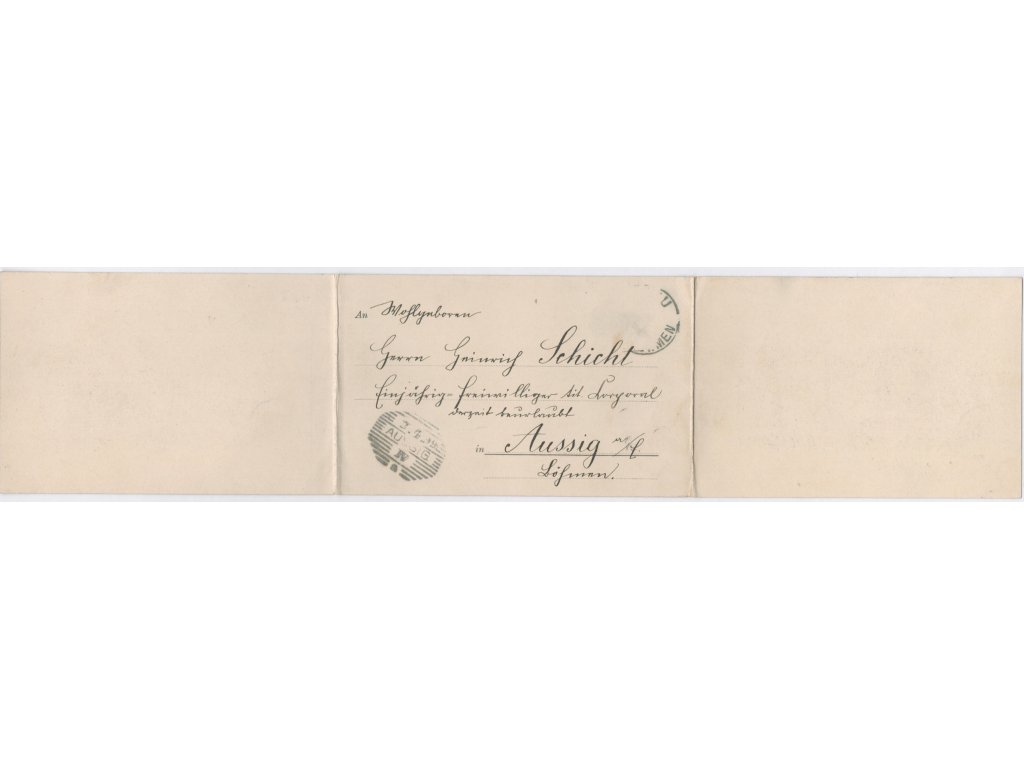 An Wohlgeboren
Herrn Heinrich Schicht
Einjährig-Freiwilliger tit Corporal
derzeit beurlaubt
in Aussig a/E.
Böhmen.
AUSSIG
IV